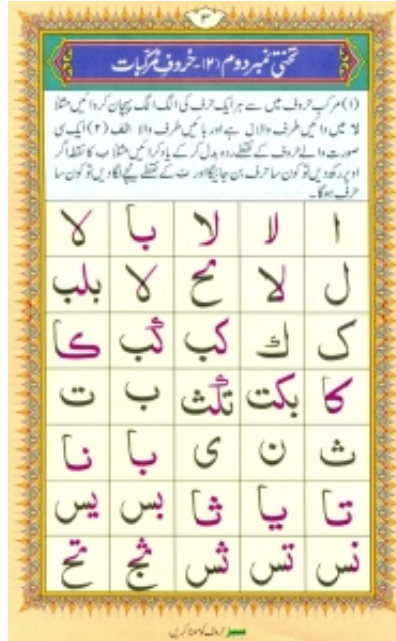 ۳
تختی نمبر دوم (۲)-حُروفِ مُرکّبات
(۱) مرکب حروف میں سے ہر ایک حرف کی الگ الگ پہچان کروائیں مثلاً
لا میں دائیں طرف والا ل ہے اور بائیں طرف والا الف (۲) ایک سی
صورت والے حروف کے نقطے ردو بدل کر کے یاد کرائیں مثلاً ب کا نقطہ اگر
اوپر رکھ دیں تو کون سا حرف بن جائیگا اور ت کے نقطے نیچے لگا دیں تو کون سا
حرف ہوگا۔
ا لا لا با لا
ل لا مح لا بلب
ک ك کب گب کا
کا بکت تلث ب ت
ث ن ی با نا
تا یا ثا بس یس
نس تس ثس ثج تح
سبز حروف کو موٹا کریں